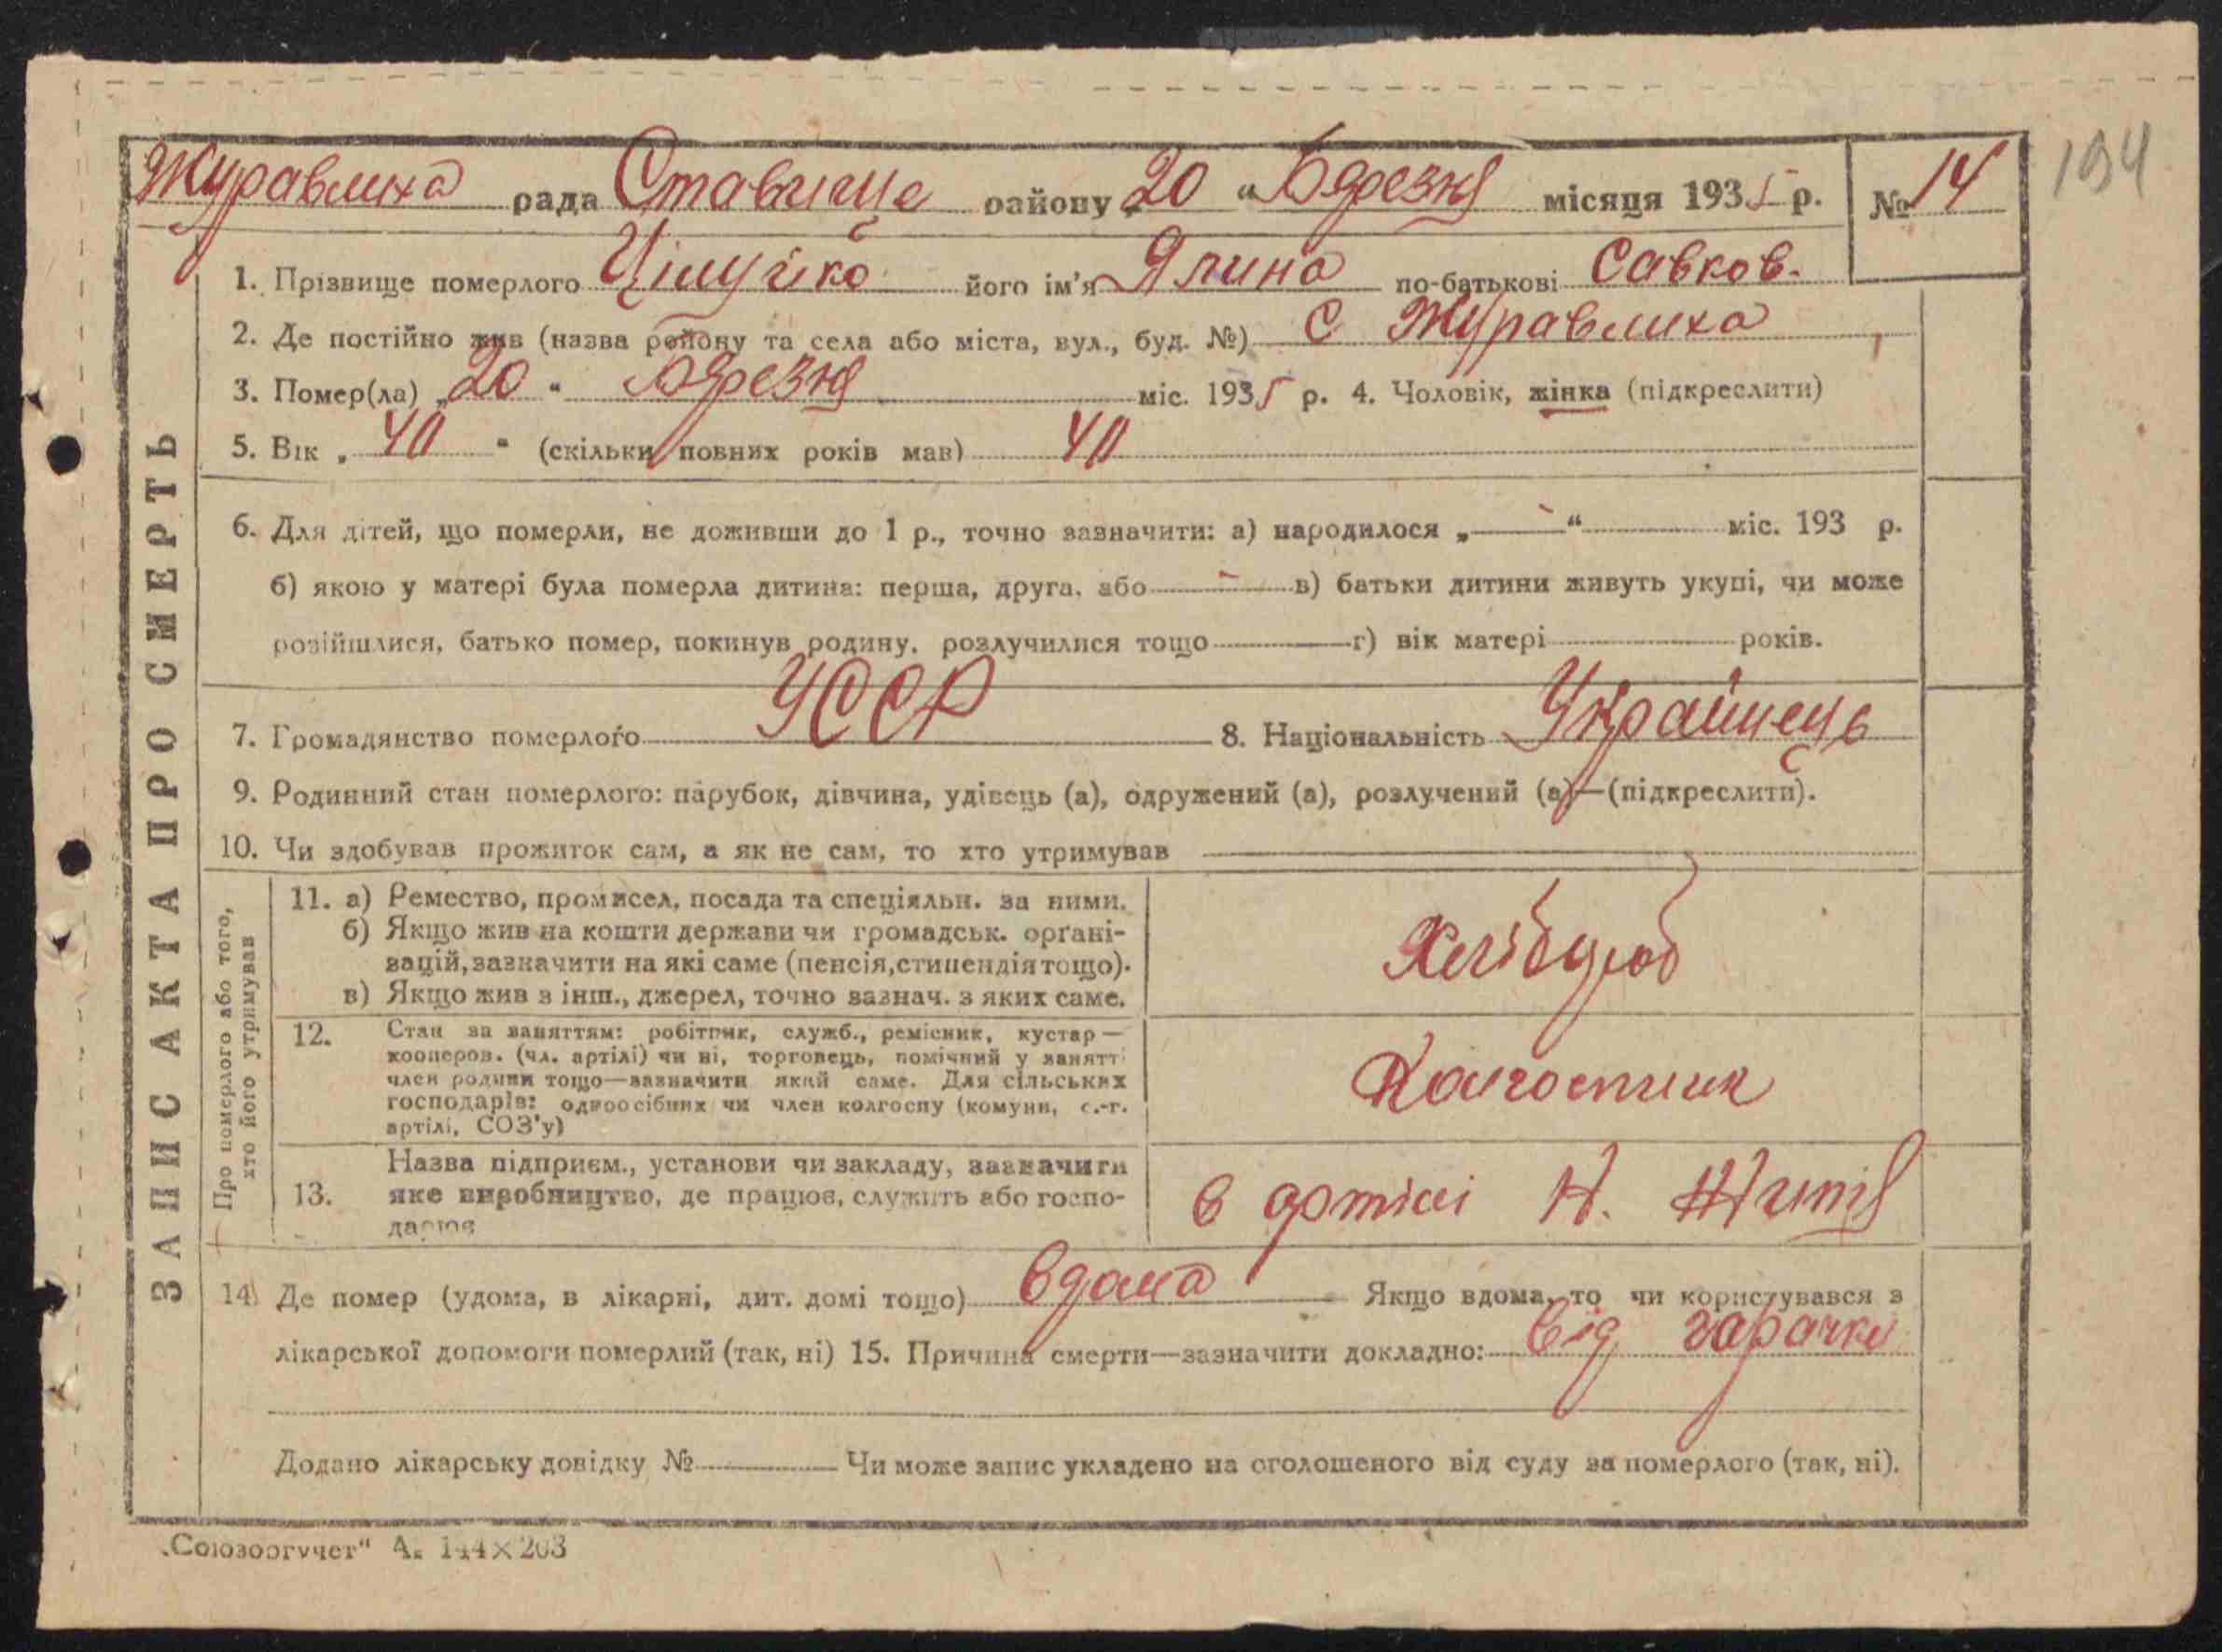 Журавлиха рада Ставище району „20“ Бярезня місяця 1935 р. № 14
194
1. Прізвище померлого його ім'я Ялина по-батькові Савков.
2. Де постійно жив (назва району та села або міста, вул., буд. №) С Журавлиха
3. Помер(ла) „20“ Бярезня міс. 1935 р. 4. Чоловік, жінка (підкреслити)
5. Вік „40“ (скільки повних років мав) 40
6. Для дітей, що померли, не доживши до 1 р., точно зазначити: а) народилося „—“ міс. 193 р.
б) якою у матері була померла дитина: перша, друга, або — в) батьки дитини живуть укупі, чи може
розійшлися, батько помер, покинув родину, розлучилися тощо г) вік матері років.
7. Громадянство померлого УССР 8. Національність Украйинець
9. Родинний стан померлого: парубок, дівчина, удівець (а), одружений (а), розлучений (а)—(підкреслити).
10. Чи здобував прожиток сам, а як не сам, то хто утримував
Про померлого або того,
хто його утримував
11. а) Ремество, промисел, посада та спеціяльн. за ними.
б) Якщо жив на кошти держави чи громадськ. орґані-
зацій, зазначити на які саме (пенсія, стипендія тощо).
в) Якщо жив з інш., джерел, точно зазнач. з яких саме.
Хлібороб
12. Стан за заняттям: робітник, служб., ремісник, кустар —
кооперов. (чл. артілі) чи ні, торговець, помічний у занятті
член родини тощо—зазначити який саме. Для сільських
господарів: одноосібник чи член колгоспу (комуни, с.-г.
артілі, СОЗ'у)
Колгоспник
13. Назва підприєм., установи чи закладу, зазначити
яке виробництво, де працює, служить або госпо-
дарює
в артілі Н. Життя
14. Де помер (удома, в лікарні, дит. домі тощо) вдома Якщо вдома, то чи користувався з
лікарської допомоги померлий (так, ні) 15. Причина смерти—зазначити докладно: від гарачки
Додано лікарську довідку № Чи може запис укладено на оголошеного від суду за померлого (так, ні).
ЗАПИС АКТА ПРО СМЕРТЬ
„Союзоргучет“ А. 144×203